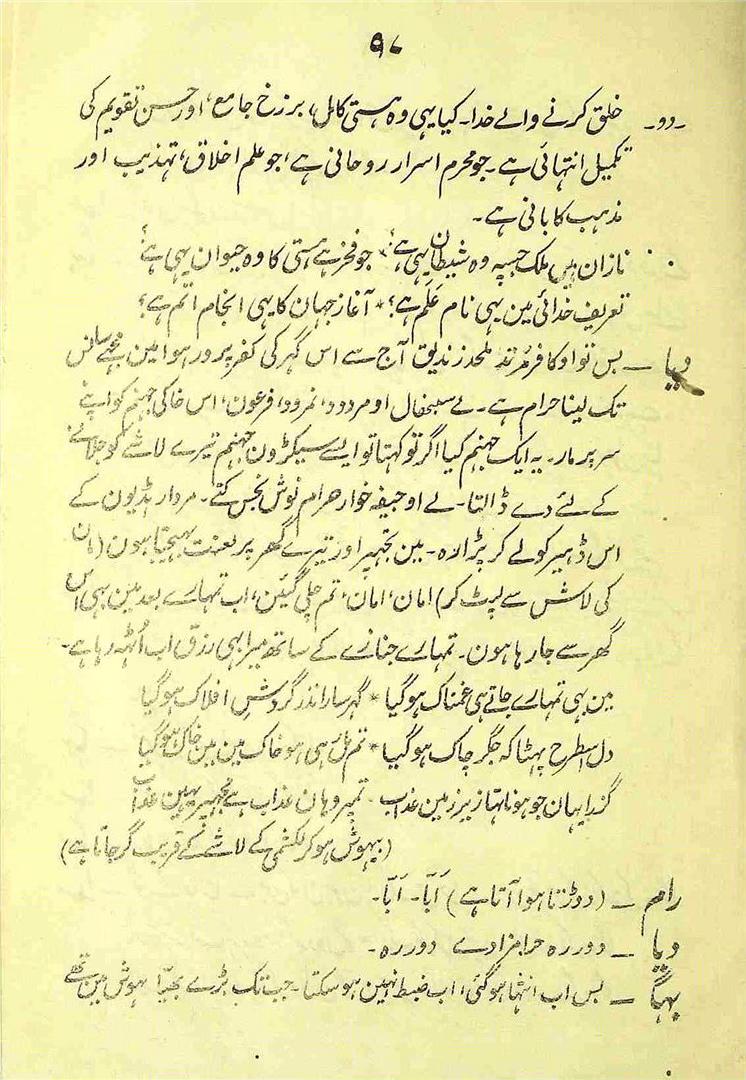 ۹۸
۔دو۔ خلق کرنے والے خدا۔ کیا یہی وہ ہستی کامل، برزخ جامع، اور حسن تقویم کی
تکمیل انتہائی ہے۔ جو محرم اسرار روحانی ہے، جو علم اخلاق، تہذیب اور
مذہب کا بانی ہے۔
نازان ہیں ملک جسپہ وہ شیطان یہی ہے؟ * جو فخر ہے ہستی کا وہ حیوان یہی ہے؟
تعریف خدائی مین یہی نام عَلم ہے؟ * آغاز جہان کا یہی انجام اتم ہے؟
دیا — بس تو او کافر مُرتد ملحد زندیق آج سے اس گہر کی کفر پرور ہوا مین مجھے سانس
تک لینا حرام ہے۔ لے سنبھال او مردود، نمرود، فرعون، اس خاکی جہنم کو اپنے
سر پر مار۔ یہ ایک جہنم کیا اگر تو کہتا تو ایسے سیکڑون جہنم تیرے لاشے کو جلانے
کے لئے دے ڈالتا۔ لے او جیفہ خوار حرام نوش نجس کتے۔ مردار ہڈیون کے
اس ڈہیر کو لے کر پڑا رہ۔ مین تجہپر اور تیرے گھر پر لعنت بہیجتا ہون (مان
کی لاش سے لپٹ کر) امان، امان، تم چلی گئین، اب تمہارے بعد مین بہی اس
گھر سے جا رہا ہون۔ تمہارے جنازے کے ساتھ میرا بہی رزق اب اُٹہہ رہا ہے۔
مین بہی تمہارے جاتے ہی غمناک ہو گیا * گہر سارا نذر گردشِ افلاک ہو گیا
دل اسطرح پہٹا کہ جگر چاک ہو گیا * تم مل رہی ہو خاک مین مین خاک ہو گیا
گذرا یہان جو ہونا تہا زیر زمین عذاب۔ تمپر وہان عذاب ہے مجہپر یہین عذاب
(بیہوش ہو کر لکشمی کے لاشے کے قریب گر جاتا ہے)
رام — (دوڑتا ہوا آتا ہے) اَبّا۔ اَبّا۔
دیا — دور رہ حرامزادے دور رہ۔
بہاگ — بس اب انتہا ہو گئی، اب ضبط نہین ہو سکتا۔ جب تک بڑے بھیّا ہوش مین تھے